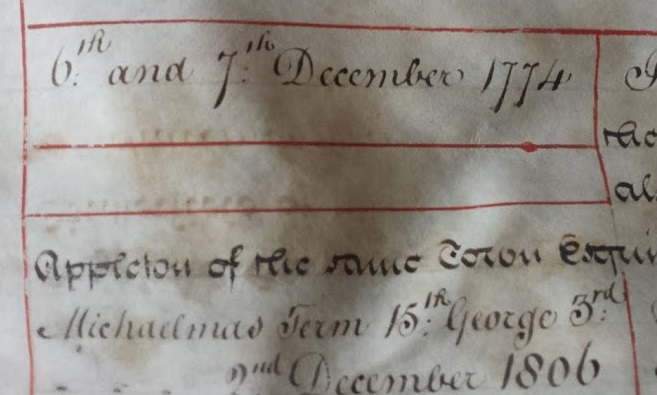 6:th and 7:th December 1774
the
Appleton of the same Town Esqui
Michaelmas Term 15:th George 3:rd
2nd December 1806